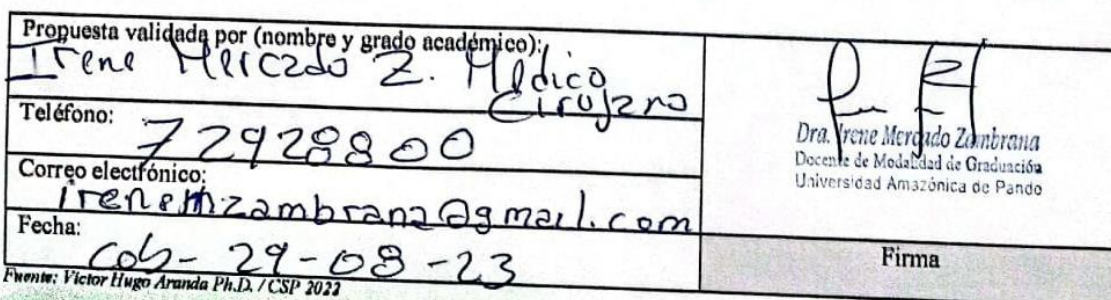 Propuesta validada por (nombre y grado académico):
Irene Mercado Z. Médico
Cirujano
Teléfono:
72928800
Correo electrónico:
irenemzambrana@gmail.com
Fecha:
Cob- 29-08-23
Dra. Irene Mercado Zambrana
Docente de Modalidad de Graduación
Universidad Amazónica de Pando
Firma
Fuente: Victor Hugo Aranda Ph.D. / CSP 2022